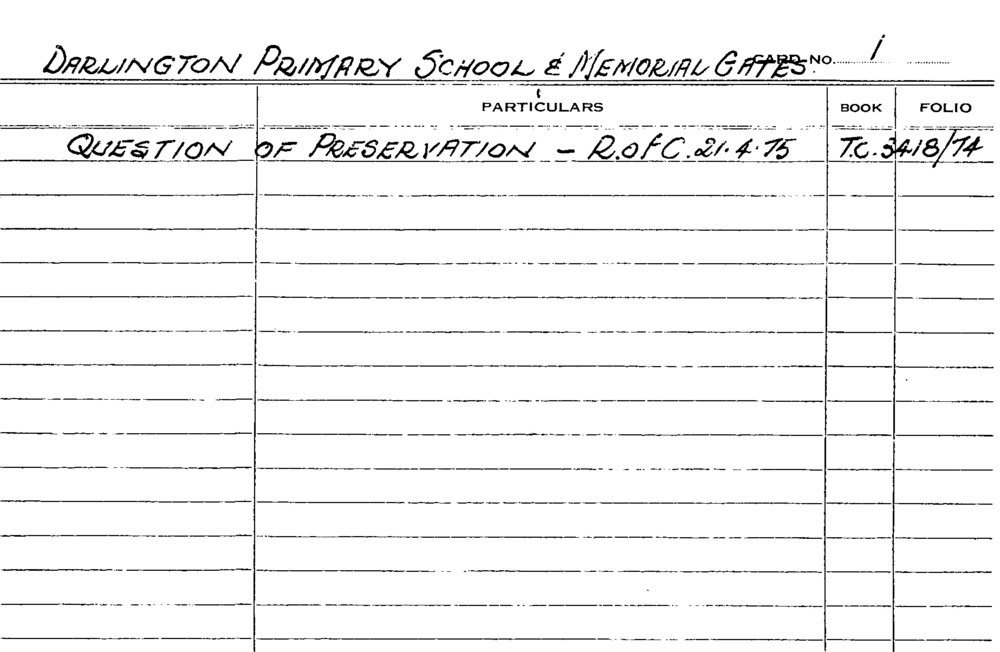 DARLINGTON PRIMARY SCHOOL & MEMORIAL GATES. CARD NO. 1
PARTICULARS BOOK FOLIO
QUESTION OF PRESERVATION – R.of C. 21.4.75 T.C. 3418/74